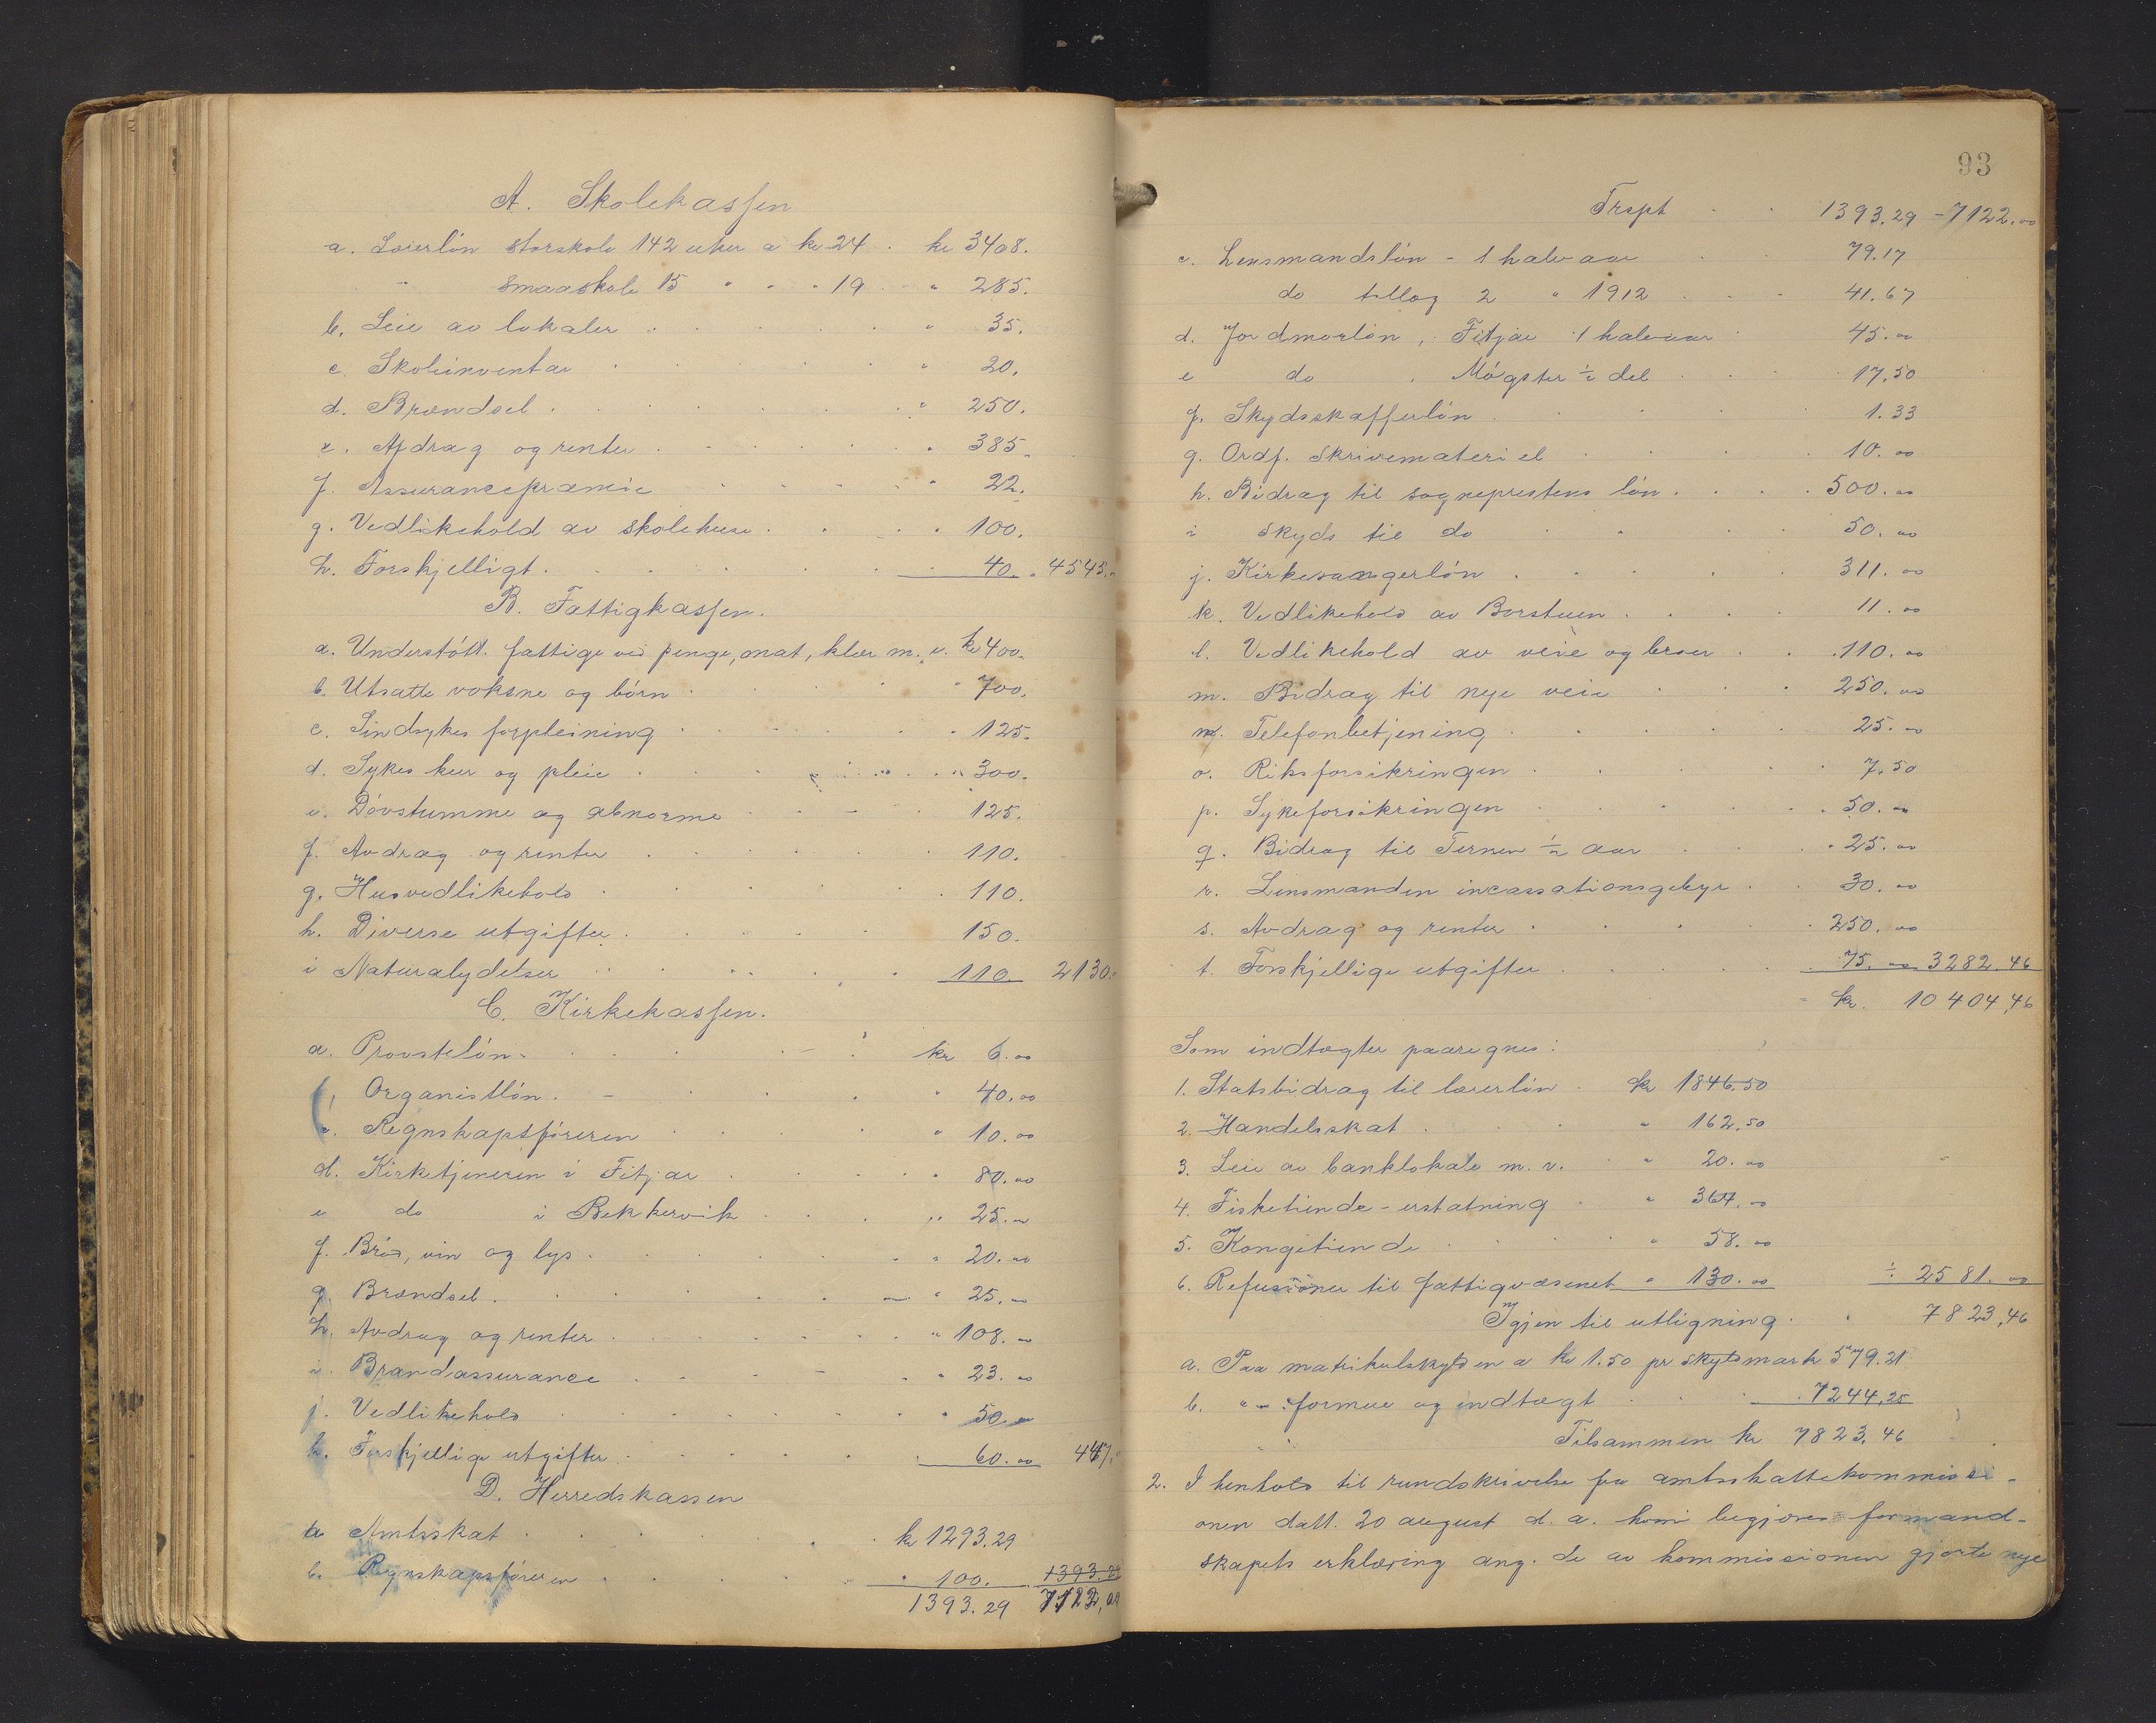 A. Skolekassen
a. Lærerløn storskole 142 uker a kr 24 . kr 3408.
" smaaskole 15 " " " 19 . " 285.
b. Leie av lokaler . . . " 35.
c. Skoleinventar . . . " 20.
d. Brændsel . . . " 250.
e. Afdrag og renter . . . " 385.
f. Assurancepræmie . . . " 22.
g. Vedlikehold av skolehuse . . . " 100.
h. Forskjelligt . . . 40. . 4545.
B. Fattigkassen.
a. Understøtt. fattige ved penge, mat, klær m. v. kr 400.
b. Utsatte voksne og børn . . . " 700.
c. Sindsykes forpleining . . . " 125.
d. Sykes kur og pleie . . . " 300.
e. Døvstumme og abnorme . . . 125.
f. Avdrag og renter . . . 110.
g. Husvedlikehold . . . 110.
h. Diverse utgifter . . . 150.
i Naturalydelser . . . 110. 2130.
C. Kirkekassen.
a. Provsteløn . . . kr 6.00
Organistløn . . . " 40.00
c. Regnskapsføreren . . . " 10.00
d. Kirketjeneren i Fitjar . . . " 80.00
e do i Bekkervik . . . " 25.00
f. Brød, vin og lys . . . " 20.00
g. Brændsel . . . " 25.00
h. Avdrag og renter . . . " 108.00
i. Brandassurance . . . " 23.00
j. Vedlikehold . . . " 50.00
k. Forskjellige utgifter . . . 60.00 447.
D. Herredskassen
a Amtsskat . . . kr 1293.29
b. Regnskapsføreren . . . " 100. 1393.29
1393.29 7122,00
93
Trspt . . 1393.29 - 7122.00
c. Lensmandsløn - 1 halvaar . . 79.17
do tillæg 2 " 1912 . . . 41.67
d. Jordmorløn, Fitjar 1 halvaar . 45.00
e do , Møgster ½ del . . . 17.50
f. Skydsskafferløn . . . 1.33
g. Ordf. skrivemateriel . . . 10.00
h. Bidrag til sogneprestens løn . . . 500.00
i skyds til do . . . 50.00
j. Kirkesangerløn . . . 311.00
k. Vedlikehold av Borstuen . . . 11.00
l. Vedlikehold av veie og broer . . . 110.00
m. Bidrag til nye veie . . . 250.00
n. Telefonbetjening . . . 25.00
o. Riksforsikringen . . . 7.50
p. Sykeforsikringen . . . 50.00
q. Bidrag til Ternen ½ aar . . . 25.00
r. Lensmanden incassationsgebyr . . 30.00
s. Avdrag og renter . . . 250.00
t. Forskjellige utgifter . . . 75.00 3282.46
kr. 10404,46
Som indtægter paaregnes:
1. Statsbidrag til lærerløn . kr 1846.50
2. Handelsskat . . . " 162.50
3. Leie av banklokale m. v. " 20.00
4. Fisketiende-erstatning . " 364.00
5. Kongetiende . . . " 58.00
6. Refusioner til fattigvæsenet " 130.00 ÷ 2581.00
Igjen til utligning . . 7823,46
a. Paa matrikulskylden a kr 1.50 pr skyldmark 579.21
b. " - formue og indtægt . . . 7244,25
Tilsammen kr 7823.46
2. I henhold til rundskrivelse fra amtsskattekommissi-
onen datt. 20 august d. a. hvori begjæres formand-
skapets erklæring ang. de av kommissionen gjorte nye